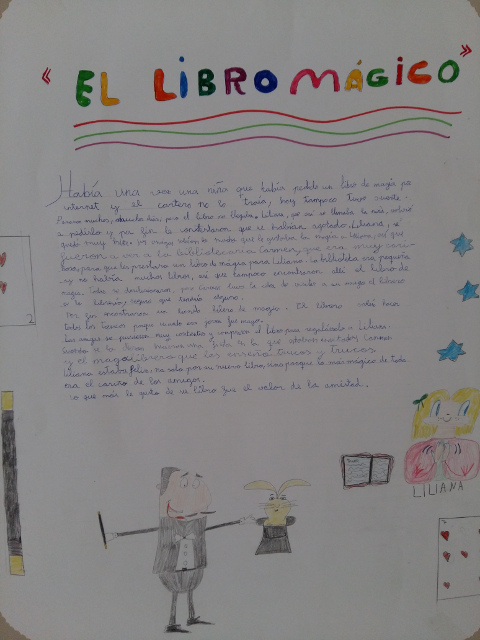 « EL LIBRO MÁGICO »
Había una vez una niña que había pedido un libro de magia por
internet y el cartero no lo traía, hoy tampoco tuvo suerte.
Pasaron muchos, días, pero el libro no llegaba, Liliana, que así se llamaba la niña, volvió
a pedirlo y por fin le contestaron que se habían agotado. Liliana, se
puso muy triste. Sus amigos sabían lo mucho que le gustaba la magia a Liliana, así que
fueron a ver a la bibliotecaria Carmen, que era muy
para que les prestara un libro de magia para Liliana. La biblioteca era pequeña
y no había muchos libros, así que tampoco encontraron allí el libro de
magia. Todos se desilusionaron, pero Carmen tuvo la idea de un mago el librero
a la librería, seguro que tendría alguno.
Por fin encontraron un libro de magia. El librero sabía hacer
todos los trucos porque cuando era joven fue mago.
Los amigos se pusieron muy contentos y compraron el libro para regalárselo a Liliana.
Cuando se lo hicieron una fiesta en la que estaban todos, Carmen
y el mago librero que les enseñó trucos y trucos
Liliana estaba feliz, no solo por su nuevo libro, sino porque lo más mágico de todo
era el cariño de los amigos.
Lo que más le gustó de su libro fue el valor de la amistad.
LILIANA
2